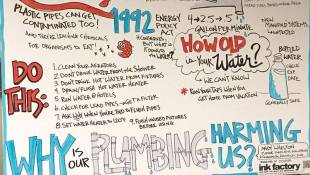 PLASTIC PIPES CAN GET
CONTAMINATED TOO!
AND YOU'RE LEAVING CHEMICALS
FOR ORGANISMS TO EAT
1992
ENERGY
POLICY
ACT
4→2.5→.5
GALLON PER MINUTE
NEW
HOW OLD
is Your
Water?
WE CAN'T KNOW
BOTTLED
WATER
CHECK
DATE
DO
THIS:
1. CLEAN YOUR AERATORS
2. DON'T DRINK WATER FROM the SHOWER
3. DON'T DRINK HOT WATER FROM FIXTURES
4. DRAIN/FLUSH HOT WATER HEATER
5. RUN WATER @ HOTELS
6. CHECK FOR LEAD PIPES → GET A FILTER
7. ASK WHY WHEN YOU'RE TOLD to FLUSH PIPES
8. SET WATER HEATER to 120°F
9. FLUSH UNUSED FIXTURES
BEFORE USING
RUN YOUR TAPS WHEN YOU
GET HOME FROM VACATION
WHY
IS OUR
PLUMBING
HARMING
US?
ANDY WHELTON
ink factory